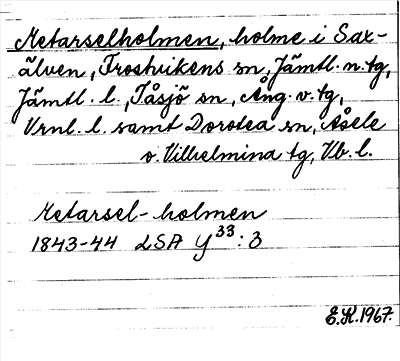 Metarselholmen, holme i Sax-
älven, Frostvikens sn, Jämtl. n. tg,
Jämtl. l., Tåsjö sn, Ång. v. tg,
Vrnl. l. samt Dorotea sn, Åsele
o. Vilhelmina tg, Vb. l.
Metarsel-holmen
1843-44 LSA Y³³: 3
E.K. 1967.